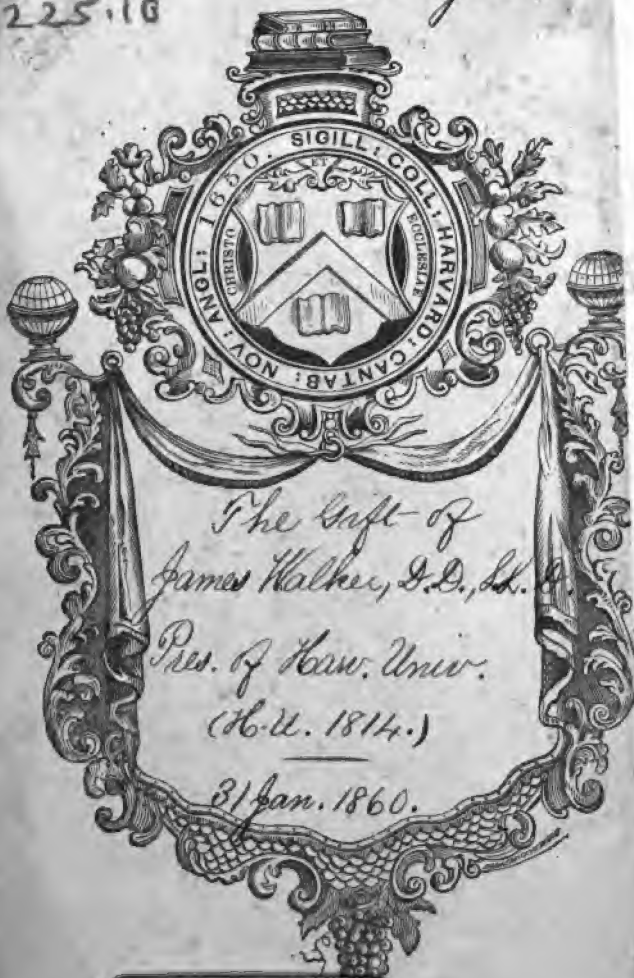 225.10
SIGILL: COLL: HARVARD: CANTAB: NOV: ANGL: 1650.
ET
CHRISTO
ECCLESIAE
The Gift of
James Walker, D.D., LL.D.
Pres. of Harv. Univ.
(H.U. 1814.)
31 Jan. 1860.